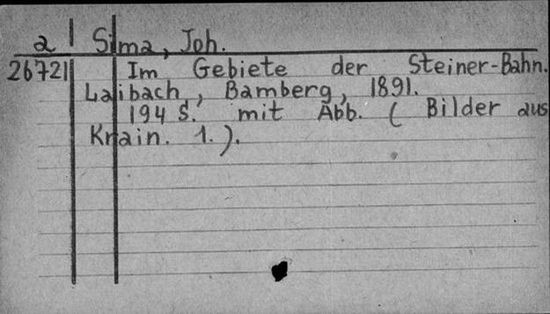 a Sima, Joh.
26721 Im Gebiete der Steiner-Bahn.
Laibach, Bamberg, 1891.
194 S. mit Abb. ( Bilder aus
Krain. 1. ).